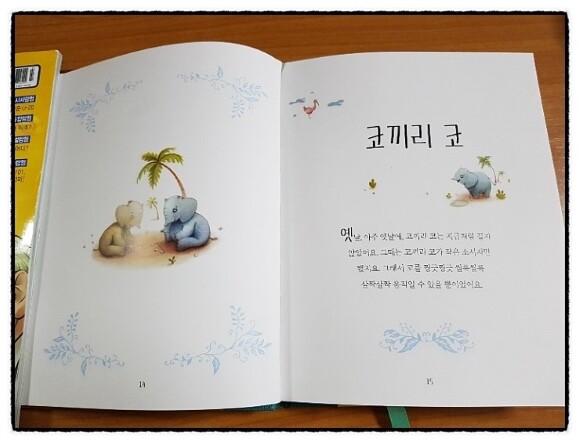 코끼리 코
옛날, 아주 옛날에, 코끼리 코는 지금처럼 길지
않았어요. 그때는 코끼리 코가 작은 소시지만
했지요. 그래서 코를 찡긋찡긋 씰룩씰룩
살짝살짝 움직일 수 있을 뿐이었어요.
14
15